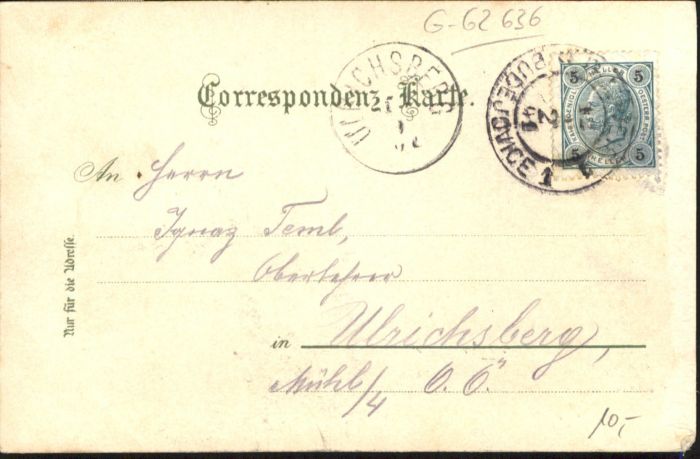 G-62 636
Correspondenz-Karte.
ULRICHSBERG
BUDEJOVICE 1
2
5 HELLER 5
5 HELLER 5
An Herrn
Ignaz Teml,
Oberlehrer
in Ulrichsberg,
Mühl/4 O.Ö.
Nur für die Adresse.
10,-